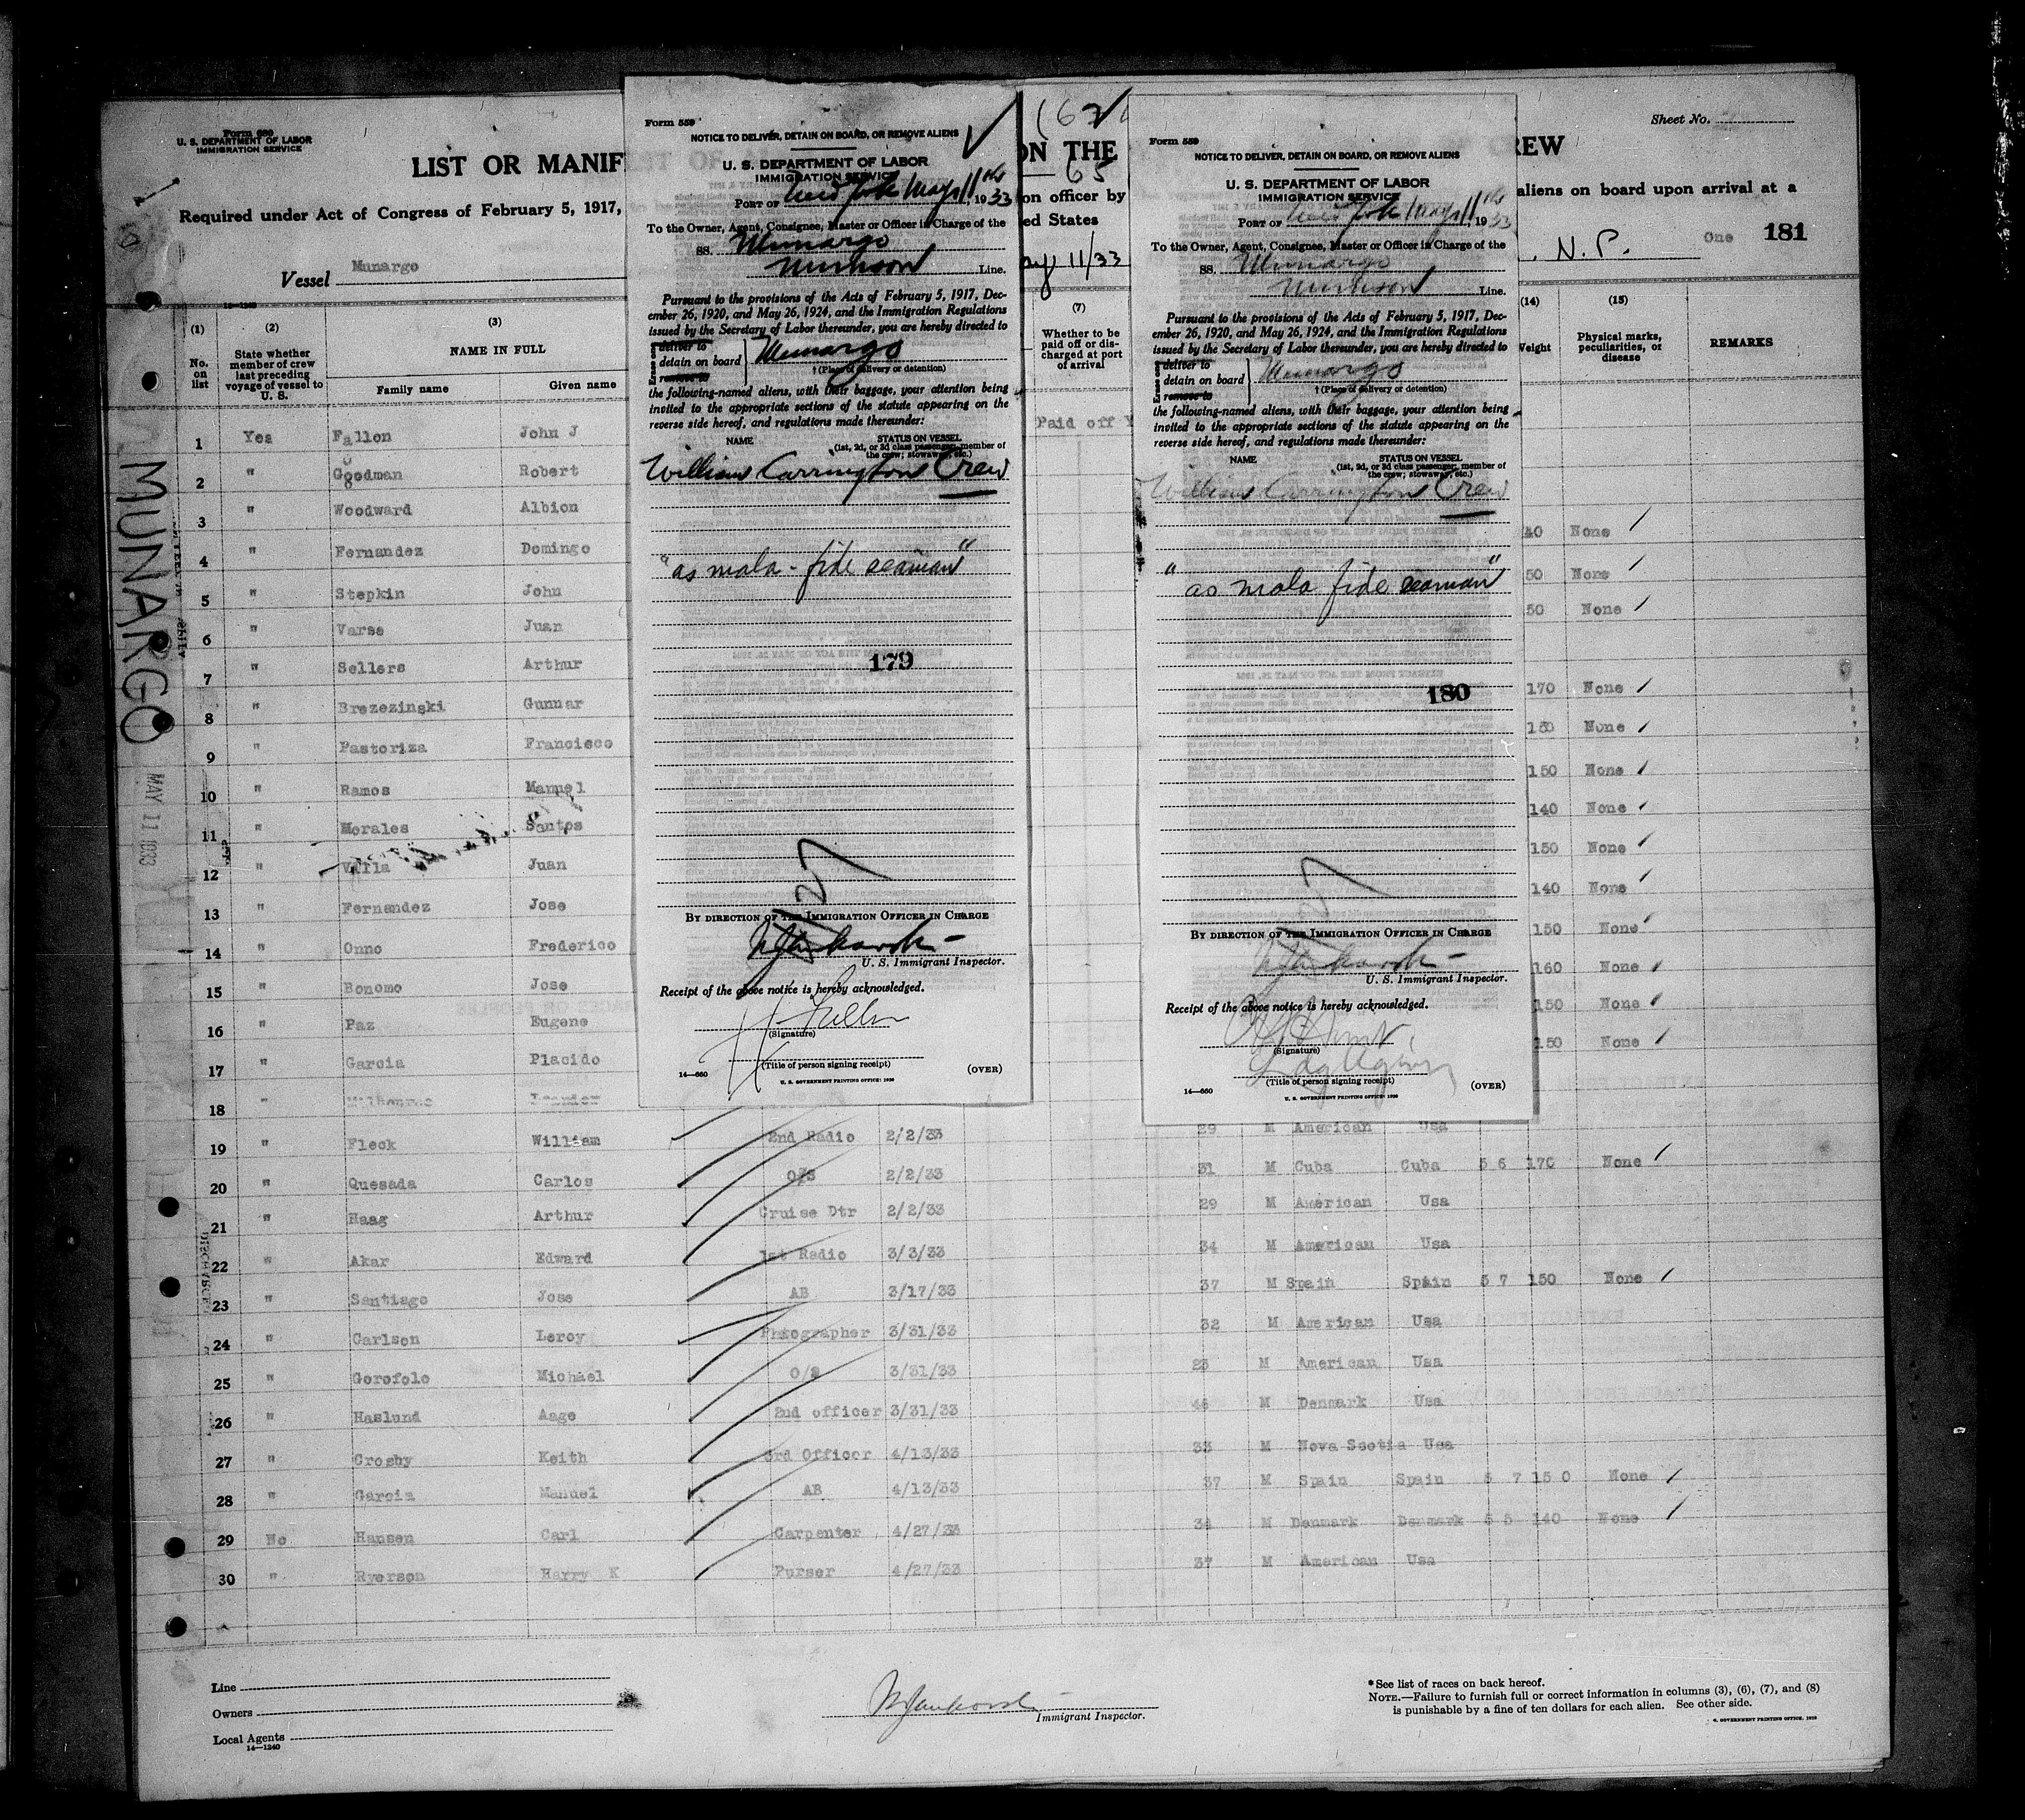 Form 680
U. S. DEPARTMENT OF LABOR
IMMIGRATION SERVICE
LIST OR MANIF
Required under Act of Congress of February 5, 1917,
Vessel Munargo
14—1240
(1) (2) (3)
No. on list
State whether member of crew last preceding voyage of vessel to U. S.
NAME IN FULL
Family name Given name
1 Yes Fallon John J
2 " Goodman Robert
3 " Woodward Albion
4 " Fernandez Domingo
5 " Stepkin John
6 " Varse Juan
7 " Sellers Arthur
8 " Brezezinski Gunnar
9 " Pastoriza Francisco
10 " Ramos Manuel
11 " Morales Santos
12 " Villa Juan
13 " Fernandez Jose
14 " Onno Frederico
15 " Bonomo Jose
16 " Paz Eugene
17 " Garcia Placido
18 "
19 " Fleck William 2nd Radio 2/2/33
20 " Quesada Carlos O/S 2/2/33
21 " Haag Arthur Cruise Dtr 2/2/33
22 " Akar Edward 1st Radio 3/3/33
23 " Santiago Jose AB 3/17/33
24 " Carlson Leroy Photographer 3/31/33
25 " Gorofolo Michael O/S 3/31/33
26 " Haslund Aage 2nd officer 3/31/33
27 " Crosby Keith 3rd Officer 4/13/33
28 " Garcia Manuel AB 4/13/33
29 No Hansen Carl Carpenter 4/27/33
30 " Ryerson Harry K Purser 4/27/33
MUNARGO
MAY 11 1933
Form 559
NOTICE TO DELIVER, DETAIN ON BOARD, OR REMOVE ALIENS
U. S. DEPARTMENT OF LABOR
IMMIGRATION SERVICE
PORT OF New York May 11th, 1933
To the Owner, Agent, Consignee, Master or Officer in Charge of the
SS. Munargo
Munson Line.
Pursuant to the provisions of the Acts of February 5, 1917, Dec-
ember 26, 1920, and May 26, 1924, and the Immigration Regulations
issued by the Secretary of Labor thereunder, you are hereby directed to
deliver to
detain on board Munargo
remove to
† (Place of delivery or detention)
the following-named aliens, with their baggage, your attention being
invited to the appropriate sections of the statute appearing on the
reverse side hereof, and regulations made thereunder:
NAME STATUS ON VESSEL
(1st, 2d, or 3d class passenger; member of
the crew; stowaway, etc.)
William Carrington Crew
"as mala-fide seaman"
179
BY DIRECTION OF THE IMMIGRATION OFFICER IN CHARGE
U. S. Immigrant Inspector.
Receipt of the above notice is hereby acknowledged.
(Signature)
(Title of person signing receipt)
14—660 (OVER)
U. S. GOVERNMENT PRINTING OFFICE: 1930
ON THE
65
on officer by
ed States
11/33
(7)
Whether to be paid off or dis-charged at port of arrival
Paid off
Form 559
NOTICE TO DELIVER, DETAIN ON BOARD, OR REMOVE ALIENS
U. S. DEPARTMENT OF LABOR
IMMIGRATION SERVICE
PORT OF New York May 11th, 1933
To the Owner, Agent, Consignee, Master or Officer in Charge of the
SS. Munargo
Munson Line.
Pursuant to the provisions of the Acts of February 5, 1917, Dec-
ember 26, 1920, and May 26, 1924, and the Immigration Regulations
issued by the Secretary of Labor thereunder, you are hereby directed to
deliver to
detain on board Munargo
remove to
† (Place of delivery or detention)
the following-named aliens, with their baggage, your attention being
invited to the appropriate sections of the statute appearing on the
reverse side hereof, and regulations made thereunder:
NAME STATUS ON VESSEL
(1st, 2d, or 3d class passenger; member of
the crew; stowaway, etc.)
William Carrington Crew
"as mala fide seaman"
180
BY DIRECTION OF THE IMMIGRATION OFFICER IN CHARGE
U. S. Immigrant Inspector.
Receipt of the above notice is hereby acknowledged.
(Signature)
(Title of person signing receipt)
14—660 (OVER)
U. S. GOVERNMENT PRINTING OFFICE: 1930
Sheet No.
REW
aliens on board upon arrival at a
N.P. One 181
(14) (15)
Weight
Physical marks, peculiarities, or disease
REMARKS
40 None
50 None
50 None
170 None
150 None
150 None
140 None
150 None
140 None
150 None
160 None
150 None
150 None
29 M American Usa
31 M Cuba Cuba 5 6 170 None
29 M American Usa
34 M American Usa
37 M Spain Spain 5 7 150 None
32 M American Usa
23 M American Usa
46 M Denmark Usa
33 M Nova Scotia Usa
37 M Spain Spain 5 7 15 0 None
34 M Denmark Denmark 5 5 140 None
37 M American Usa
Line
Owners
Local Agents
14—1240
Immigrant Inspector.
*See list of races on back hereof.
NOTE.—Failure to furnish full or correct information in columns (3), (6), (7), and (8)
is punishable by a fine of ten dollars for each alien. See other side.